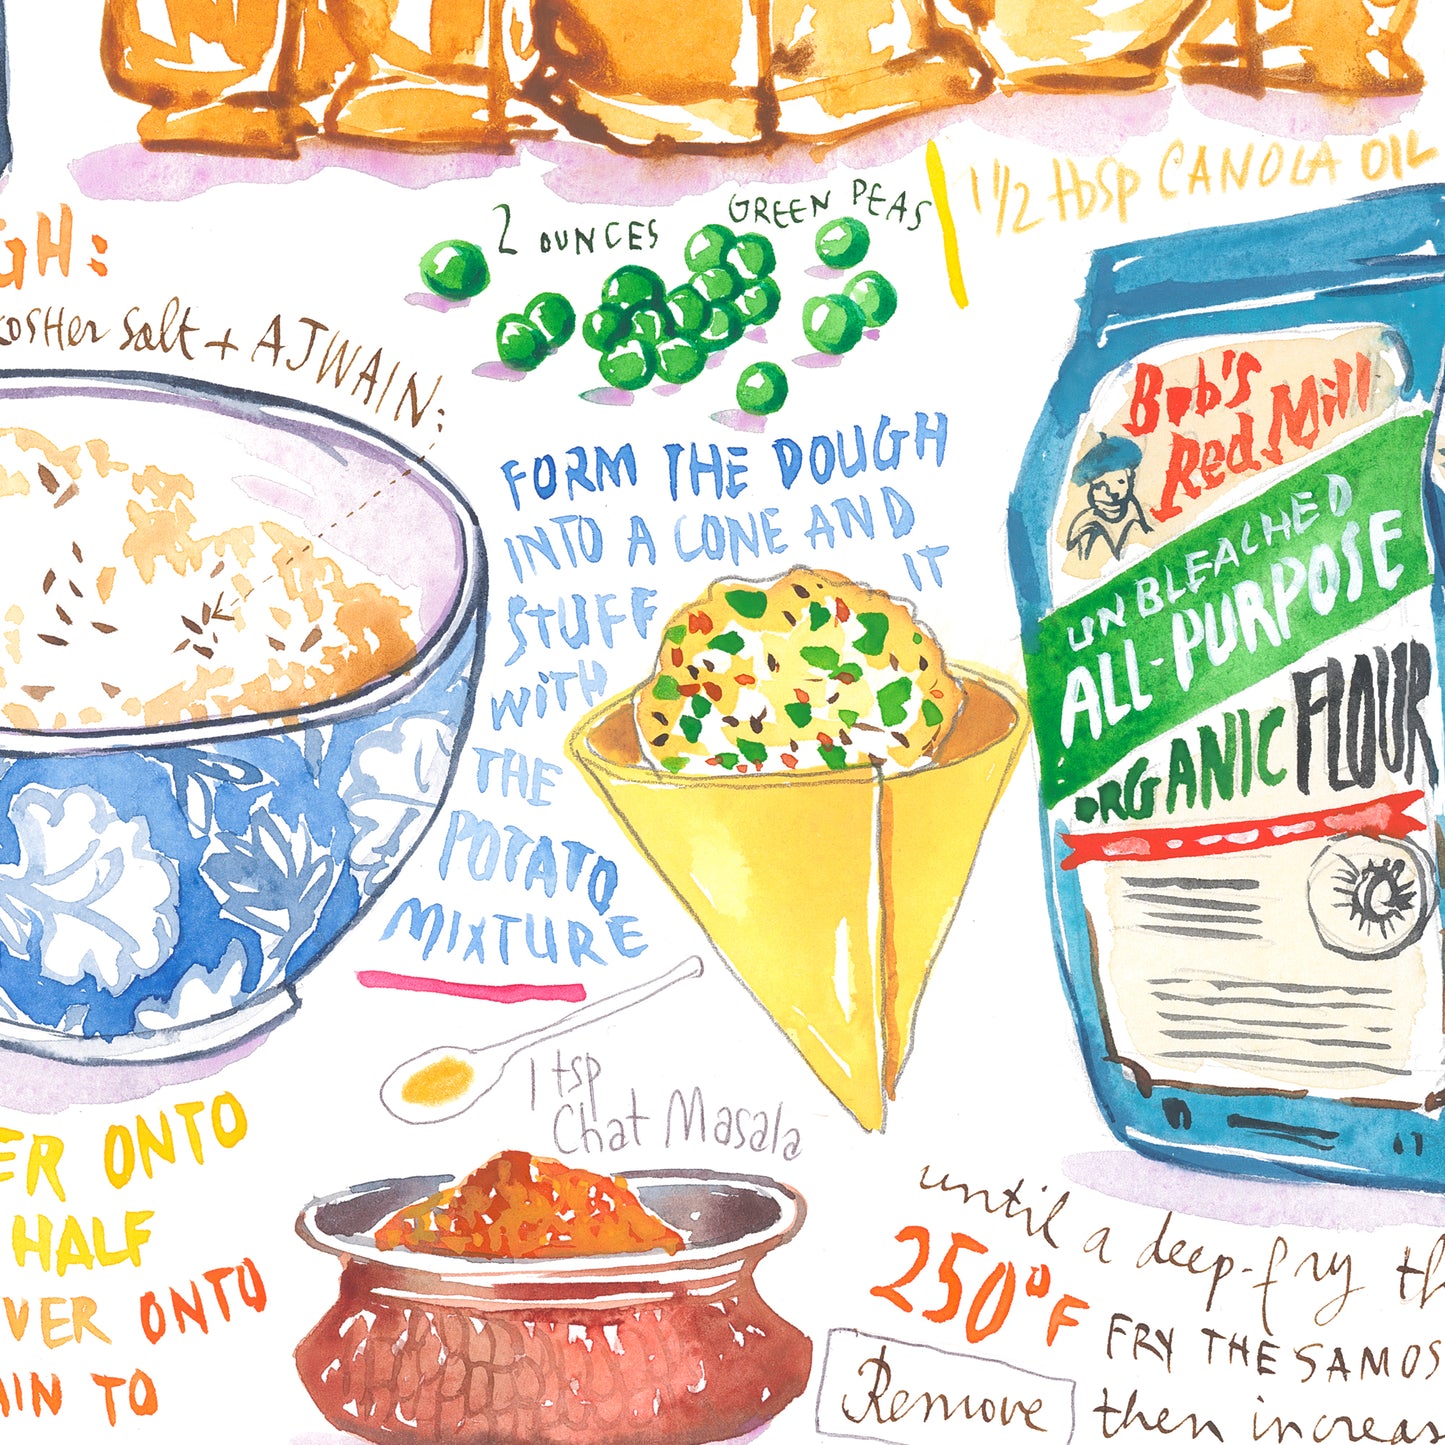 1 1/2 tbsp CANOLA OIL
2 OUNCES GREEN PEAS
GH:
kosher salt + AJWAIN:
FORM THE DOUGH
INTO A CONE AND
STUFF IT
WITH
THE
POTATO
MIXTURE
Bob's
Red Mill
UNBLEACHED
ALL-PURPOSE
ORGANIC FLOUR
1 tsp
Chat Masala
ER ONTO
HALF
VER ONTO
AIN TO
until a deep-fry th
250°F
FRY THE SAMOS
Remove then increas